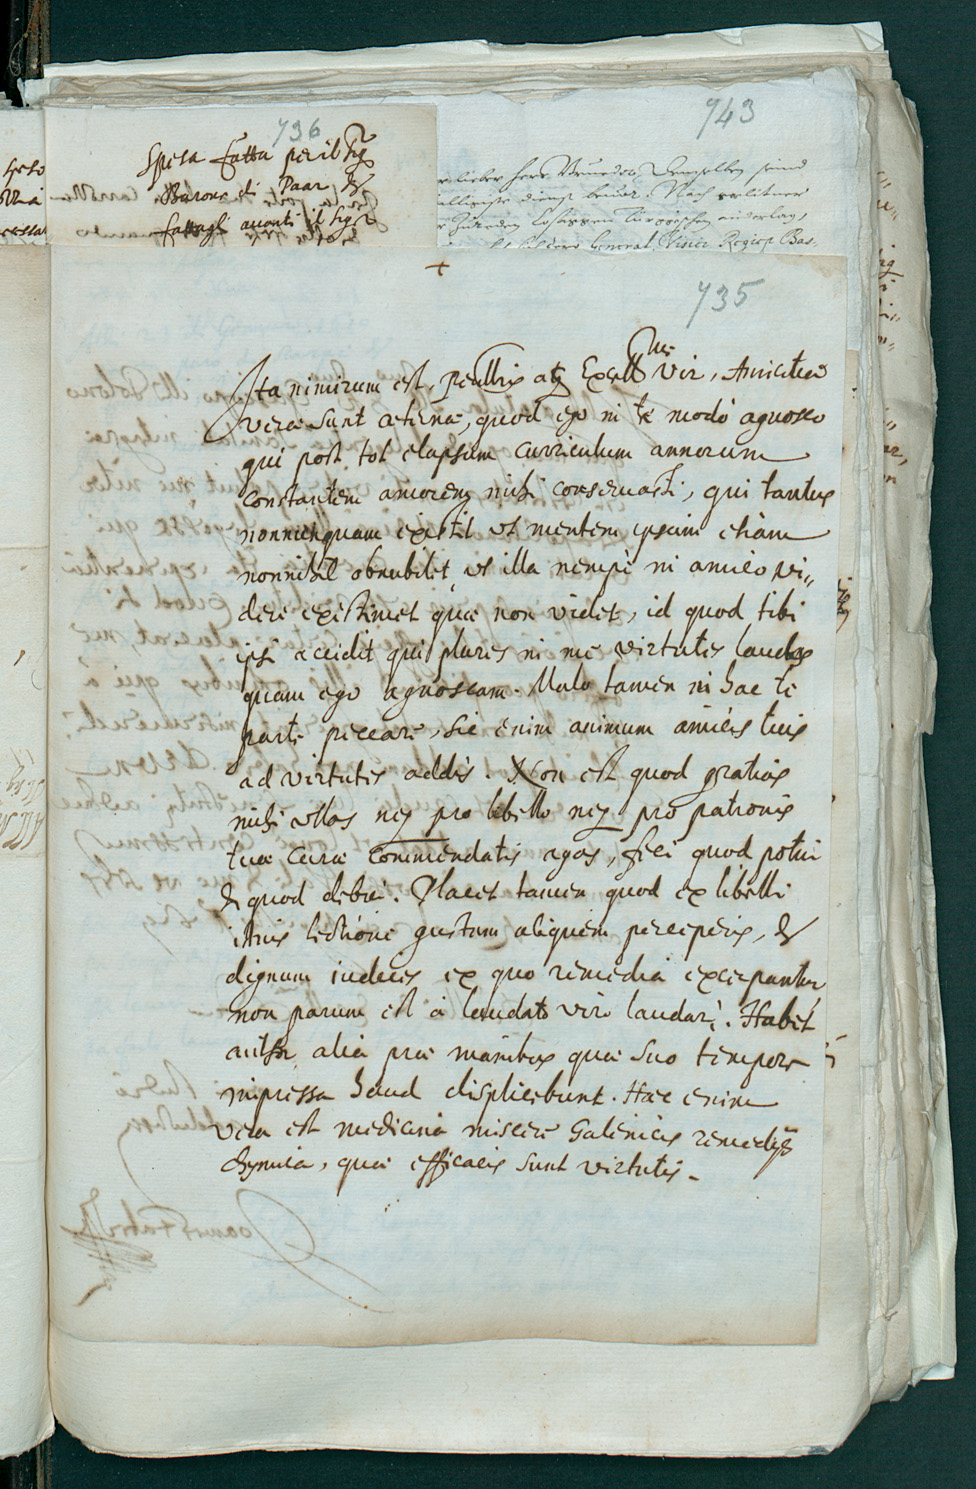 943
736
Spesa fatta per il Sig
Barone di Paar &
fattagli avanti il Sig
General Visier Regiep Bas-
+
735
Ita nimirum est, perillris atq Excellme Vir, Amicitiae
verae sunt aeternae, quod ego in te modò agnosco
qui post tot elapsum curriculum annorum
constantem amorem mihi conservasti, qui tantus
nonnunquam existit ut mentem ipsam etiam
nonnihil obnubilet, ut illa nempè in amico vi„
dere existimet quae non videt, id quod tibi
ipsi accidit qui plures in me virtutis laudes
quam ego agnoscam. Malo tamen in hac te
parte peccare, sic enim animum amicis tuis
ad virtutis addis. Non est quod gratias
mihi ullas neq pro libello neq pro patronis
tuae curae commendatis agas, feci quod potui
& quod debui. Placet tamen quod ex libelli
istius lectione gustum aliquem perceperis, &
dignum iudices ex quo remedia excerpantur
non parum est à laudato viro laudari. Habet
author alia prae manibus quae suo tempore
impressa haud displicebunt. Haec enim
vera est medicina miscere Galenicis remedijs
chymica, quae efficacis sunt virtutis.